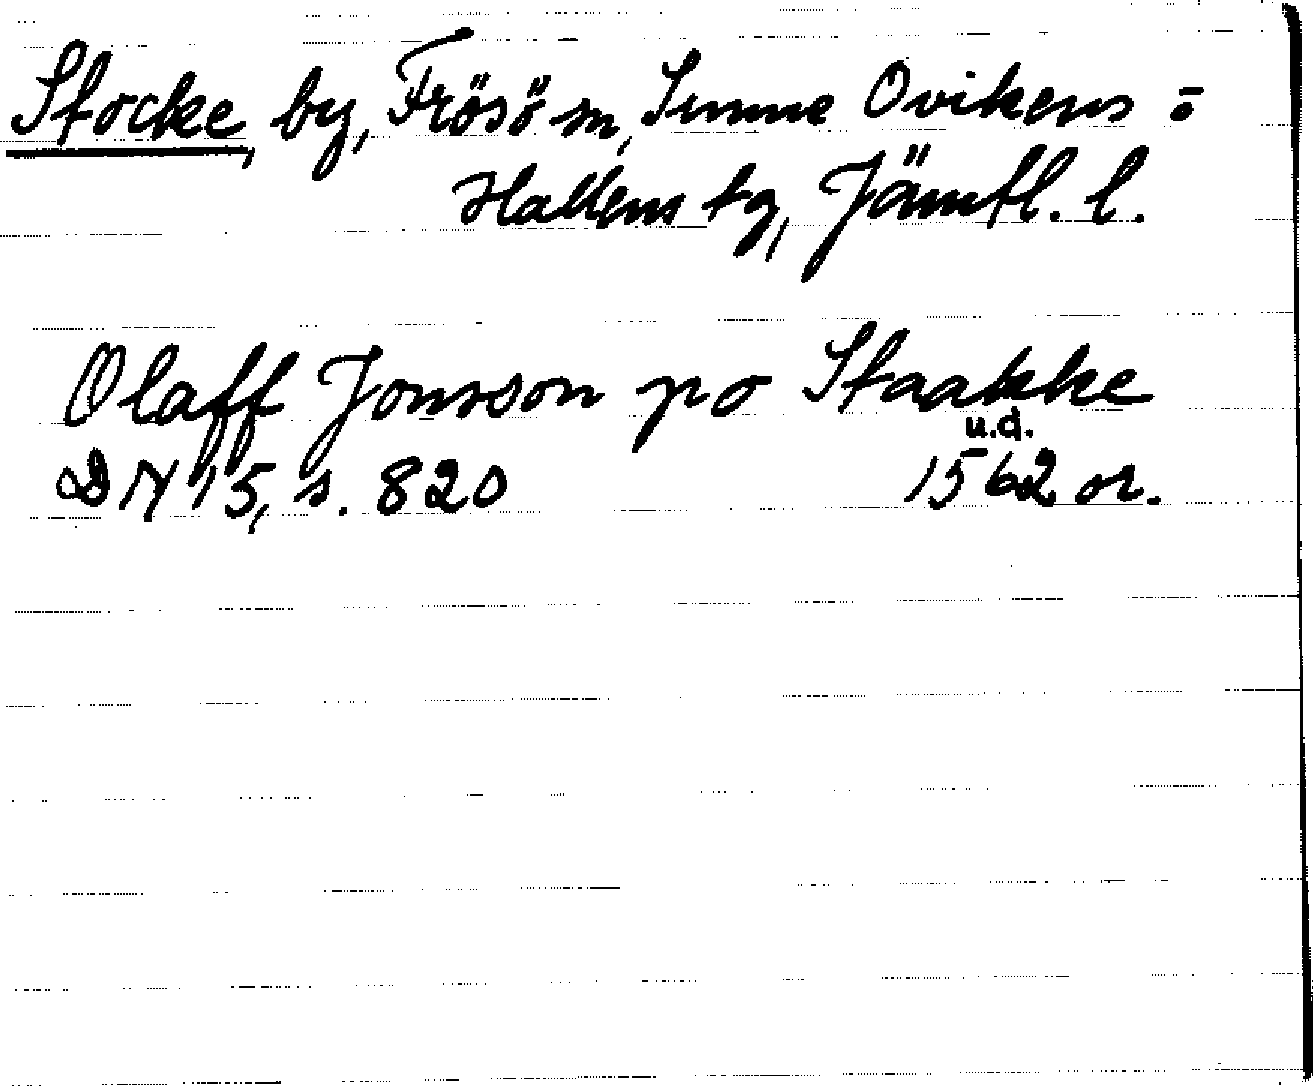 Stocke, by, Frösö sn, Sunne Ovikens o
Hallens tg, Jämtl. l.
Olaff Jonsson po Staakke
u.d.
DN 15, s. 820 1562 or.